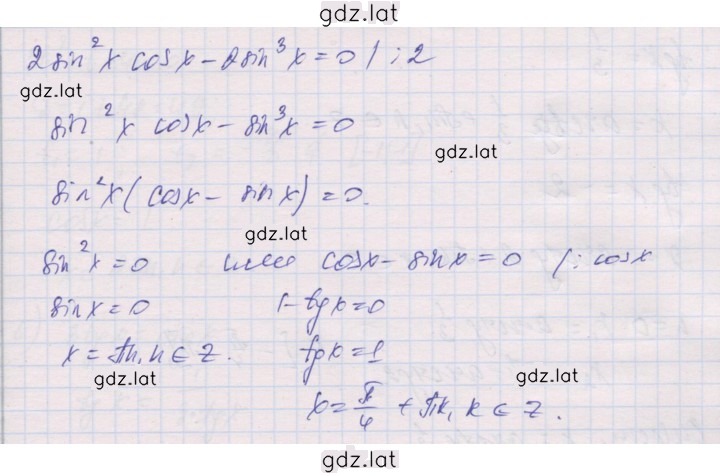 gdz.lat
2sin²x cosx - 2sin³x = 0 / :2
gdz.lat
sin²x cosx - sin³x = 0
gdz.lat
sin²x(cosx - sinx) = 0.
gdz.lat
sin²x = 0 или cosx - sinx = 0 /: cosx
sinx = 0 1 - tgx = 0
x = πn, n ∈ Z. tgx = 1
gdz.lat gdz.lat
x = π/4 + πk, k ∈ Z.
gdz.lat